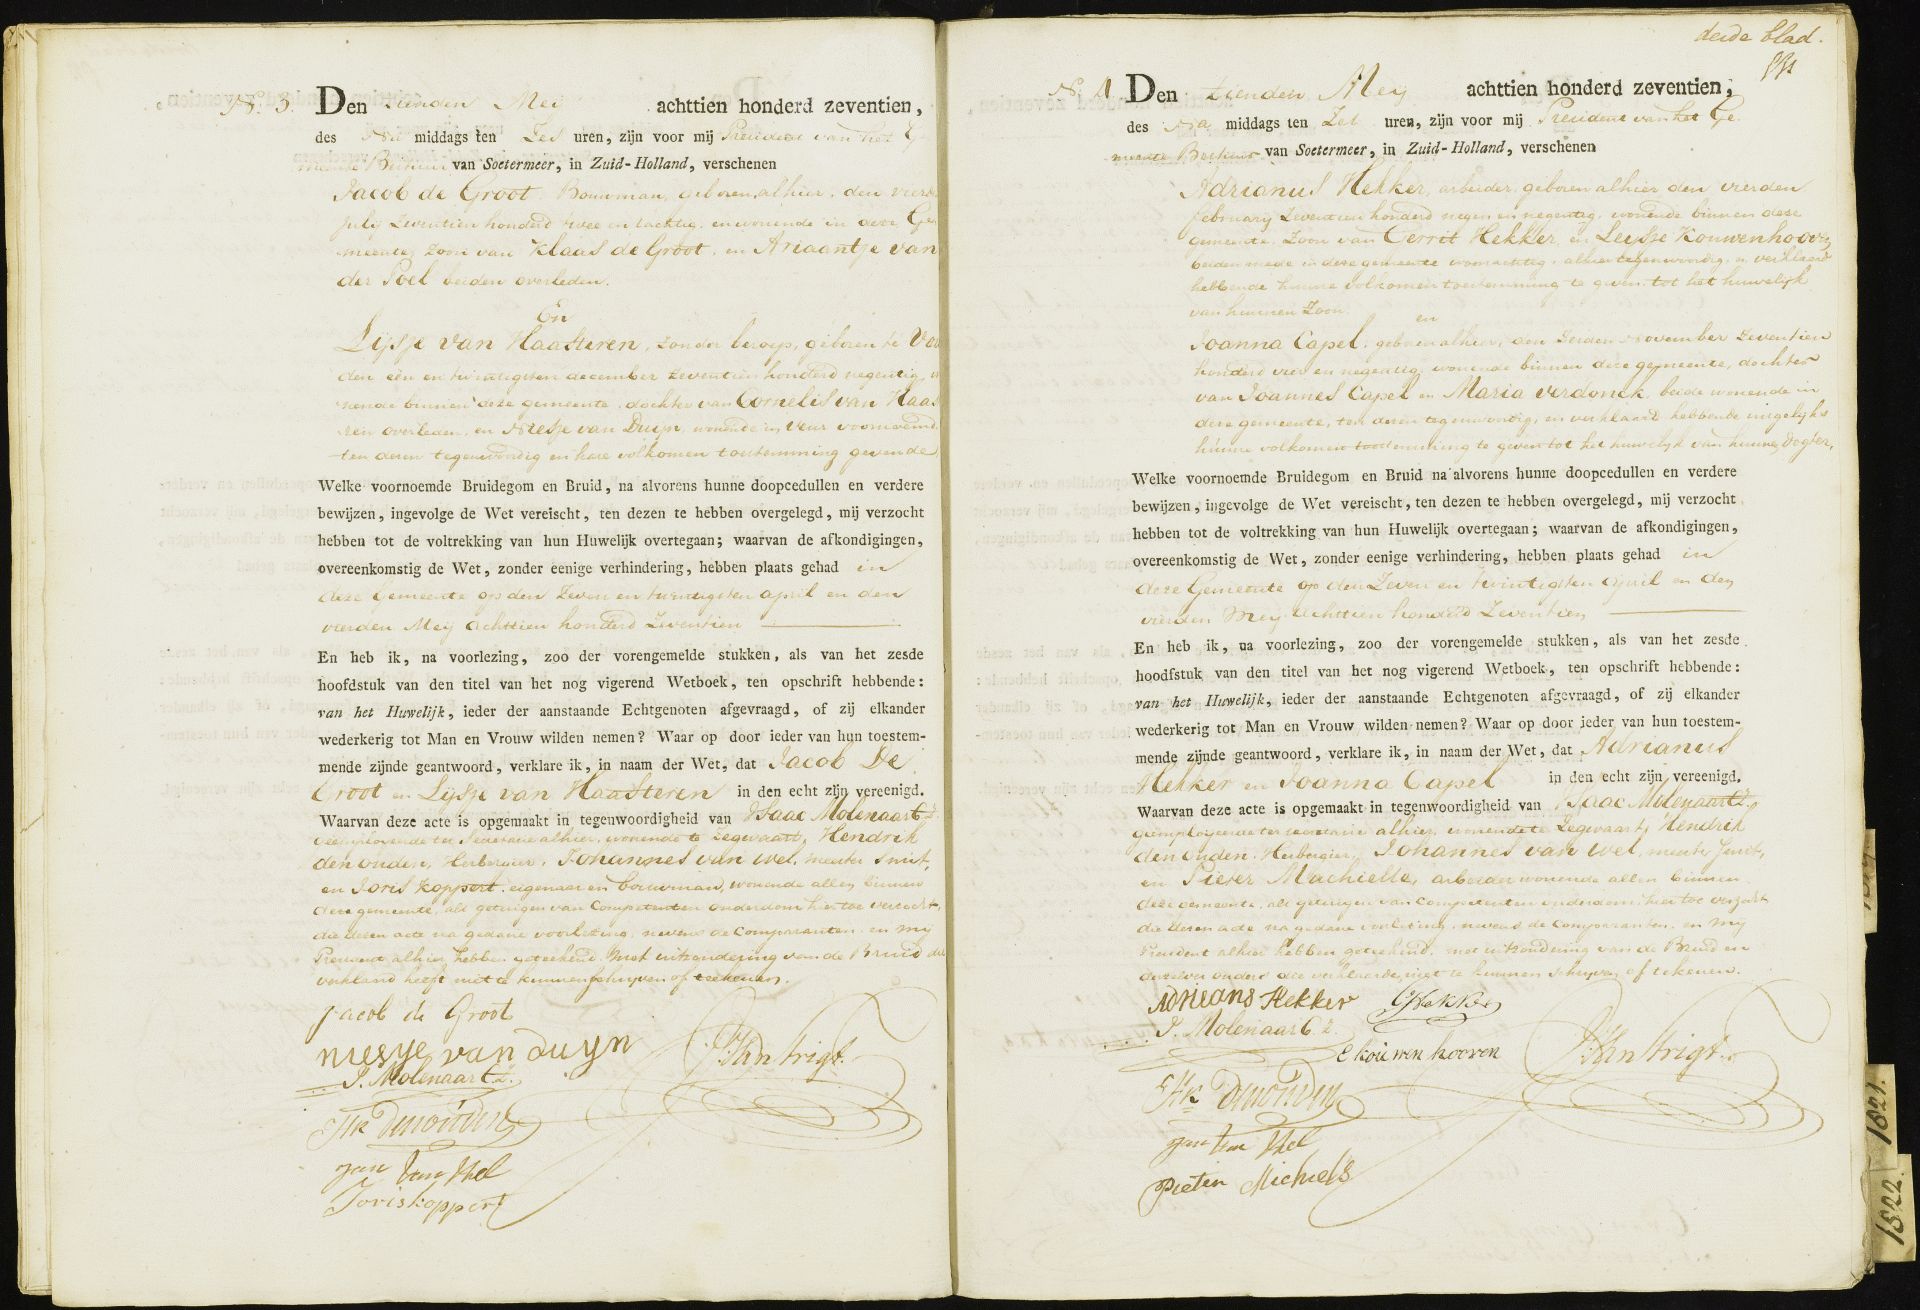 N. 3. Den tienden Meij achttien honderd zeventien,
des Na middags ten Zes uren, zijn voor mij President van het Ge-
meente Bestuur van Soetermeer, in Zuid-Holland, verschenen
Jacob de Groot, Bouwman, geboren alhier, den vierden
julij zeventien honderd twee en tachtig, en wonende in deze Ge-
meente, zoon van Klaas de Groot, en Ariaantje van
der Poel beiden overleden.
En
Lijsje van Haasteren, zonder beroep, geboren te
den een en twintigsten december zeventien honderd negentig,
nende binnen deze gemeente, dochter van Cornelis van Haas
ren overleden, en Niesje van Duijn, wonende in Veur voornoemd
ten deren tegenwoordig en hare volkomen toestemming gevende
Welke voornoemde Bruidegom en Bruid, na alvorens hunne doopcedullen en verdere
bewijzen, ingevolge de Wet vereischt, ten dezen te hebben overgelegd, mij verzocht
hebben tot de voltrekking van hun Huwelijk overtegaan; waarvan de afkondigingen,
overeenkomstig de Wet, zonder eenige verhindering, hebben plaats gehad in
deze Gemeente op den Zeven en twintigsten april en den
vierden Meij achttien honderd Zeventien
En heb ik, na voorlezing, zoo der vorengemelde stukken, als van het zesde
hoofdstuk van den titel van het nog vigerend Wetboek, ten opschrift hebbende:
van het Huwelijk, ieder der aanstaande Echtgenoten afgevraagd, of zij elkander
wederkerig tot Man en Vrouw wilden nemen? Waar op door ieder van hun toestem-
mende zijnde geantwoord, verklare ik, in naam der Wet, dat Jacob De
Groot en Lijsje van Haasteren in den echt zijn vereenigd.
Waarvan deze acte is opgemaakt in tegenwoordigheid van Isaac Molenaar Cz.
geemploijeerde ter Secretarie alhier, wonende te Zegwaart, Hendrik
den ouden, Herbergier, Johannes van Wel, meester Smit,
en Joris Koppert, eigenaar en bouwman, wonende allen binnen
deze gemeente, als getuigen van Competenten ouderdom hier toe verzocht,
die deren acte na gedane voorlezing, nevens de Comparanten, en mij
President alhier hebben geteekend, met uitzondering van de Bruid die
verklaard heeft niet te kunnen schrijven of teekenen.
Jacob de Groot
niesye van duyn
I. Molenaar Cz.
Hk Den ouden
Jan van Wel
Joris koppert
derde blad.
N. 4 Den tienden Meij achttien honderd zeventien,
des Na middags ten Zes uren, zijn voor mij President van het Ge-
meente Bestuur van Soetermeer, in Zuid-Holland, verschenen
Adrianus Hekker, arbeider, geboren alhier den vierden
februarij Zeventien honderd negen en negentig, wonende binnen deze
gemeente, Zoon van Gerrit Hekker, en Leijsje Kouwenhooven,
beiden mede in deze gemeente woonachtig, alhier tegenwoordig, en verklaard
hebbende hunne volkomen toestemming te geven tot het huwelijk
van hunnen Zoon.
en
Joanna Capel, geboren alhier, den Zesden November Zeventien
honderd vier en negentig, wonende binnen deze gemeente, dochter
van Joannes Capel en Maria Verdonck, beide wonende in
deze gemeente, ten deren tegenwoordig, en verklaard hebbende insgelijks
hunne volkomen toestemming te geven tot het huwelijk van hunne dogter,
Welke voornoemde Bruidegom en Bruid na alvorens hunne doopcedullen en verdere
bewijzen, ingevolge de Wet vereischt, ten dezen te hebben overgelegd, mij verzocht
hebben tot de voltrekking van hun Huwelijk overtegaan; waarvan de afkondigingen,
overeenkomstig de Wet, zonder eenige verhindering, hebben plaats gehad in
deze Gemeente op den Zeven en twintigsten April en den
vierden Meij Achttien honderd Zeventien
En heb ik, na voorlezing, zoo der vorengemelde stukken, als van het zesde
hoodfstuk van den titel van het nog vigerend Wetboek, ten opschrift hebbende:
van het Huwelijk, ieder der aanstaande Echtgenoten afgevraagd, of zij elkander
wederkerig tot Man en Vrouw wilden nemen? Waar op door ieder van hun toestem-
mende zijnde geantwoord, verklare ik, in naam der Wet, dat Adrianus
Hekker en Joanna Capel in den echt zijn vereenigd.
Waarvan deze acte is opgemaakt in tegenwoordigheid van Isaac Molenaar Cz.
geemploijeerde ter secretarie alhier, wonende te Zegwaart, Hendrik
den ouden, Herbergier, Johannes van Wel, meester Smit,
en Pieter Machielse, arbeider wonende allen binnen
deze gemeente, als getuigen van Competenten ouderdom hier toe verzocht
die deren acte na gedane voorlezing, nevens de Comparanten, en mij
President alhier hebben geteekend, met uitzondering van de Bruid en
derzelver ouders die verklaarde niet te kunnen schrijven of tekenen.
Adrieans Hekker GHekker
I. Molenaar Cz.
E kouwen hooven
Hk Den ouden
Jan van Wel
Pieter Michiels
1821.
1822.